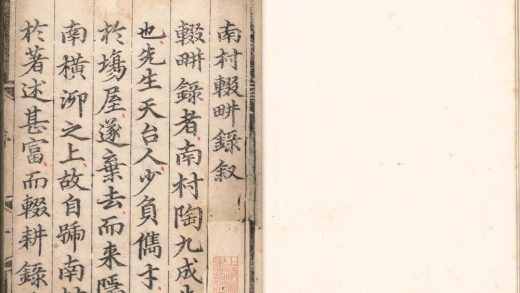 南村輟畊錄叙
輟畊錄者南村陶九成
也先生天台人少負儁才
於塲屋遂棄去而来隱
南横泖之上故自號南村
於著述甚富而輟耕錄